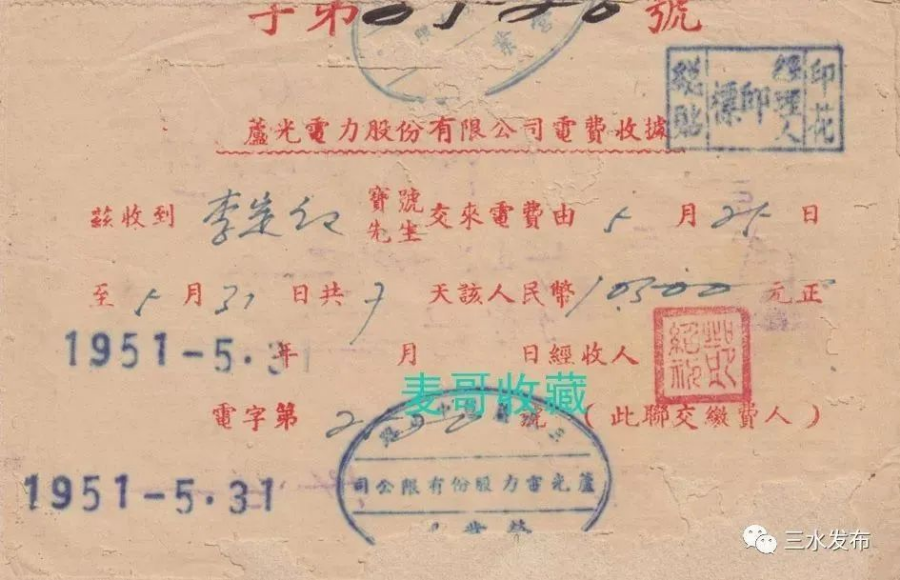 字第 號
印花 經理人 印 總貼
蘆光電力股份有限公司電費收據
茲收到 李 寶號 先生 交來電費由 5 月 25 日
至 5 月 31 日共 7 天該人民幣 10300 元正
1951-5.31 年 月 日經收人
麦哥收藏
電字第 號 (此聯交繳費人)
蘆光電力股份有限公司
營業
1951-5.31
三水发布